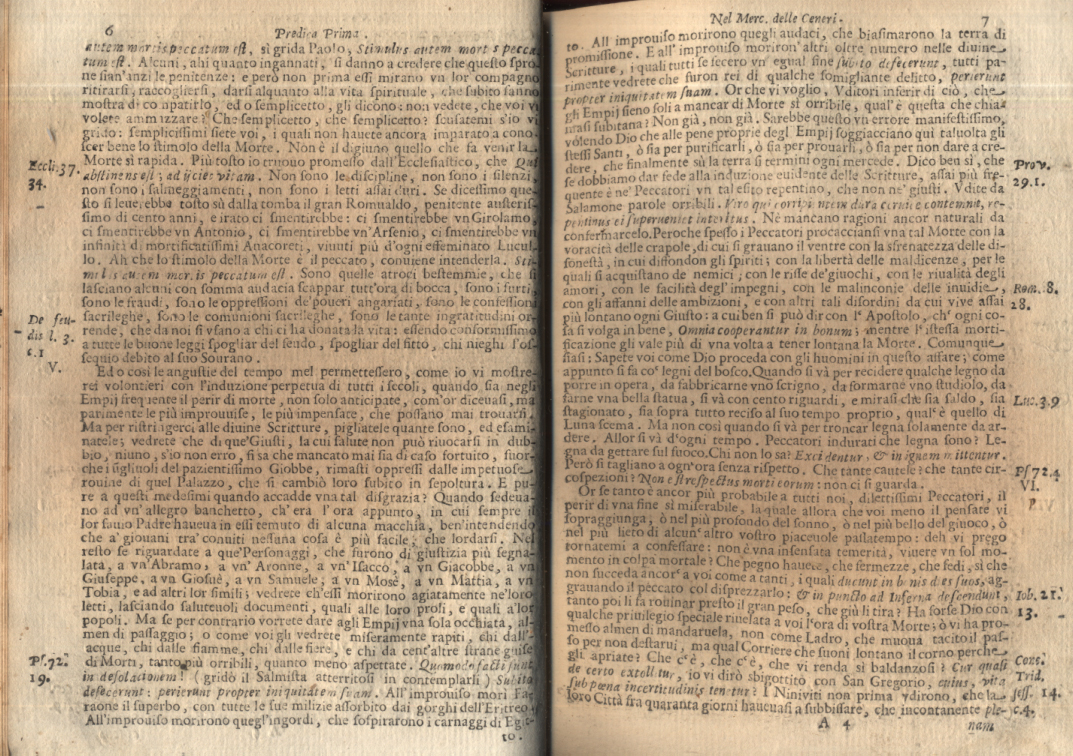 6
Predica Prima.
autem mortis peccatum est, sì grida Paolo, Stimulus autem mortis pecca-
tum est. Alcuni, ahi quanto ingannati, si danno a credere che questo spro-
ne sian'anzi le penitenze: e però non prima essi mirano vn lor compagno
ritirarsi, raccogliersi, darsi alquanto alla vita spirituale, che subito fanno
mostra di compatirlo, ed o semplicetto, gli dicono: non vedete, che voi vi
volete ammazzare? Che semplicetto, che semplicetto? scusatemi s'io vi
grido: semplicissimi siete voi, i quali non hauete ancora imparato a cono-
scer bene lo stimolo della Morte. Non è il digiuno quello che fa venir la
Morte sì rapida. Più tosto io truouo promesso dall'Ecclesiastico, che Qui
abstinens est, adijciet vitam. Non sono le discipline, non sono i silenzi,
non sono i salmeggiamenti, non sono i letti assai duri. Se dicessimo que-
sto si leuerebbe tosto sù dalla tomba il gran Romualdo, penitente austeris-
simo di cento anni, e irato ci smentirebbe: ci smentirebbe vn Girolamo,
ci smentirebbe vn Antonio, ci smentirebbe vn'Arsenio, ci smentirebbe vn
infinità di mortificatissimi Anacoreti, viuuti più d'ogni esseminato Lucul-
lo. Ah che lo stimolo della Morte è il peccato, conuiene intenderla. Sti-
mulus autem mortis peccatum est. Sono quelle atroci bestemmie, che si
lasciano alcuni con somma audacia scappar tutt'ora di bocca, sono i furti,
sono le fraudi, sono le oppressioni de'poueri angariati, sono le confessioni
sacrileghe, sono le comunioni sacrileghe, sono le tante ingratitudini or-
rende, che da noi si vsano a chi ci ha donata la vita: essendo conformissimo
a tutte le buone leggi spogliar del feudo, spogliar del fitto, chi nieghi l'os-
sequio debito al suo Sourano.
Ed o così le angustie del tempo mel permettessero, come io vi mostre-
rei volontieri con l'induzione perpetua di tutti i secoli, quando sia negli
Empij frequente il perir di morte, non solo anticipate, com'or diceuasi, ma
parimente le più improuise, le più impensate, che possano mai trouarsi.
Ma per ristrignerci alle diuine Scritture, pigliatele quante sono, ed esami-
natele; vedrete che di que'Giusti, la cui salute non può riuocarsi in dub-
bio, niuno, s'io non erro, si sa che mancato mai sia di caso fortuito, fuor-
che i figliuoli del pazientissimo Giobbe, rimasti oppressi dalle impetuose
rouine di quel Palazzo, che si cambiò loro subito in sepoltura. E pu-
re a questi medesimi quando accadde vna tal disgrazia? Quando sedeua-
no ad vn'allegro banchetto, ch'era l'ora appunto, in cui sempre il
lor sauio Padre haueua in essi temuto di alcuna macchia, ben'intendendo
che a'giouani tra'conuiti nessuna cosa è più facile, che lordarsi. Nel
resto se riguardate a que'Personaggi, che furono di giustizia più segna-
lata, a vn'Abramo, a vn'Aronne, a vn'Isacco, a vn Giacobbe, a vn
Giuseppe, a vn Giosuè, a vn Samuele, a vn Mosè, a vn Mattia, a vn
Tobia, e ad altri lor simili; vedrete ch'essi morirono agiatamente ne'loro
letti, lasciando saluteuoli documenti, quali alle loro prosi, e quali a'lor
popoli. Ma se per contrario vorrete dare agli Empij vna sola occhiata, al-
men di passaggio; o come voi gli vedrete miseramente rapiti, chi dall'-
acque, chi dalle fiamme, chi dalle fiere, e chi da cent'altre strane guise
di Morti, tanto più orribili, quanto meno aspettate. Quomodo facti sunt
in desolationem! (gridò il Salmista atterritosi in contemplarli) Subitò
defecerunt: perierunt propter iniquitatem suam. All'improuiso morì Fa-
raone il superbo, con tutte le sue milizie assorbito dai gorghi dell'Eritreo.
All'improuiso morirono quegl'ingordi, che sospirarono i carnaggi di Egit-
to.
Eccli. 37.
34.
De feu-
dis l. 3.
t.1
V.
Ps. 72.
19.
Nel Merc. delle Ceneri.
7
to. All improuiso morirono quegli audaci, che biasimarono la terra di
promissione. E all'improuiso moriron'altri oltre numero nelle diuine
Scritture, i quali tutti se fecero vn'egual fine subito defecerunt, tutti pa-
rimente vedrete che furon rei di qualche somigliante delitto, perierunt
propter iniquitatem suam. Or che vi voglio, Vditori inferir di ciò, che
gli Empij sieno soli a mancar di Morte sì orribile, qual'è questa che chia-
masi subitana? Non già, non già. Sarebbe questo vn errore manifestissimo,
volendo Dio che alle pene proprie degl Empij soggiacciano qui taluolta gli
stessi Santi, ò sia per purificarli, ò sia per prouarli, ò sia per non dare a cre-
dere, che finalmente sù la terra si termini ogni mercede. Dico ben sì, che
se dobbiamo dar fede alla induzione euidente delle Scritture, assai più fre-
quente è ne' Peccatori vn tal esito repentino, che non ne' giusti. Vdite da
Salamone parole orribili. Viro qui corripientem dura ceruice contemnit, re-
pentinus ei superueniet interitus. Nè mancano ragioni ancor naturali da
confermarcelo. Peroche spesso i Peccatori procacciansi vna tal Morte con la
voracità delle crapole, di cui si grauano il ventre con la sfrenatezza delle di-
sonestà, in cui diffondon gli spiriti; con la libertà delle maldicenze, per le
quali si acquistano de nemici; con le risse de'giuochi, con le riualità degli
amori, con le facilità degl'impegni, con le malinconie delle inuidie,
con gli affanni delle ambizioni, e con altri tali disordini da cui viue assai
più lontano ogni Giusto: a cui ben si può dir con l' Apostolo, ch' ogni co-
sa si volga in bene, Omnia cooperantur in bonum; mentre l'istessa morti-
ficazione gli vale più di vna volta a tener lontana la Morte. Comunque
siasi: Sapete voi come Dio proceda con gli huomini in questo affare; come
appunto si fa co' legni del bosco. Quando si và per recidere qualche legno da
porre in opera, da fabbricarne vno scrigno, da formarne vno studiolo, da
farne vna bella statua, si và con cento riguardi, e mirasi che sia saldo, sia
stagionato, sia sopra tutto reciso al suo tempo proprio, qual' è quello di
Luna scema. Ma non così quando si và per troncar legna solamente da ar-
dere. Allor si và d'ogni tempo. Peccatori indurati che legna sono? Le-
gna da gettare sul fuoco. Chi non lo sa? Excidentur, & in ignem mittentur.
Però si tagliano a ogn'ora senza rispetto. Che tante cautele? che tante cir-
cospezioni? Non est respectus morti eorum: non ci si guarda.
Or se tanto è ancor più probabile a tutti noi, dilettissimi Peccatori, il
perir di vna fine sì miserabile, la quale allora che voi meno il pensate vi
sopraggiunga, ò nel più profondo del sonno, ò nel più bello del giuoco, ò
nel più lieto di alcun' altro vostro piaceuole passatempo: deh vi prego
tornatemi a confessare: non è vna insensata temerità, viuere vn sol mo-
mento in colpa mortale? Che pegno hauete, che fermezze, che fedi, sì che
non succeda ancor' a voi come a tanti, i quali ducunt in bonis dies suos, ag-
grauando il peccato col disprezzarlo: & in puncto ad Inferna descendunt,
tanto poi li fa rouinar presto il gran peso, che giù li tira? Ha forse Dio con
qualche priuilegio speciale riuelata a voi l'ora di vostra Morte; ò vi ha pro-
messo almen di mandaruela, non come Ladro, che muoua tacito il pas-
so per non destarui, ma qual Corriere che suoni lontano il corno perche
gli apriate? Che c'è, che c'è, che vi renda sì baldanzosi? Cur quasi
de certo extollitur, io vi dirò sbigottito con San Gregorio, cuius, vita
sub pœna incertitudinis tenetur? I Niniviti non prima vdirono, che la
loro Città fra quaranta giorni haueuasi a subbissare, che incontanente ple-
A 4
nam
Prov.
29.1.
Rom. 8.
28.
Luc. 3.9
Ps 72.4
VI.
P
Iob. 21.
13.
Conc.
Trid.
sess. 14.
c.4.